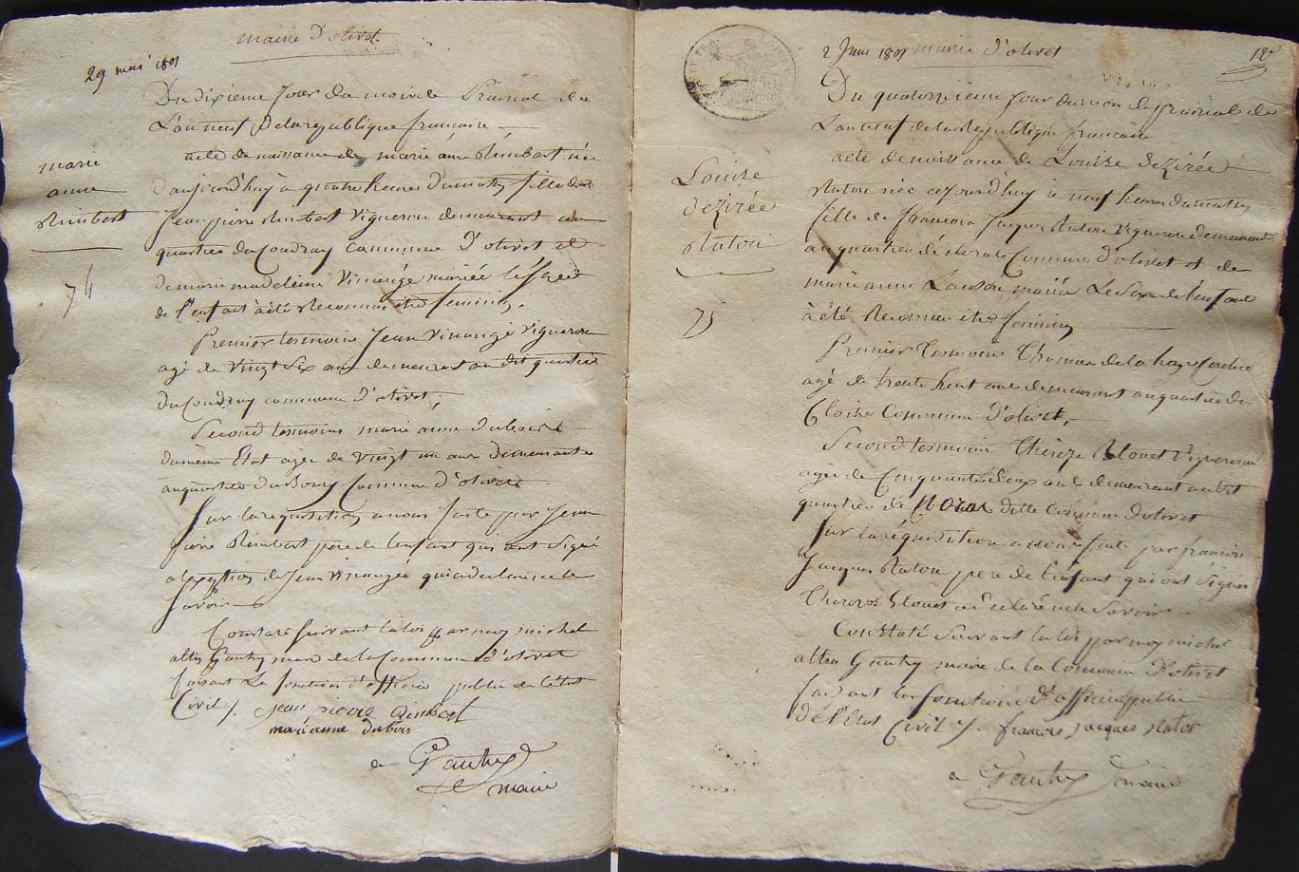 mairie d'olivet
29 mai 1801
Du dixieme Jour du mois de Prairial de
L'an neuf De la republique francaise
marie
anne
Rimbert
74
acte de naissance de marie anne Rimbert née
d'aujourd'huy à quatre heures du matin fille de
Jean pierre Rimbert Vigneron demeurant au
quartier du Coudray Commune d'olivet et
de marie madeleine mariée le Sexe
de l'enfant à été Reconnu être feminin,
Premier temoin Jean Vigneron
agé de Vingt Six ans demeurant au dit quartier
du Coudray commune d'olivet,
Second temoin marie anne dubois
du meme Etat agée de Vingt un ans demeurante
au quartier du Bourg Commune d'olivet
Sur la requisition a nous faite par Jean
pierre Rimbert pere de l'enfant qui ont Signé
a l'exception de Jean qui a declaré ne le
Savoir
Constaté Suivant la loi par moy michel
Gautry maire de la Commune d'olivet
faisant Les fonctions d'officier public de l'état
Civil jean pierre Rimbert
marianne dubois
Gautry
maire
2 Juin 1801 mairie d'olivet
Du quatorzieme Jour du mois de prairial de
L'an neuf de la Republique francaise
Louise
dezirée
Raton
75
acte de naissance de Louise dezirée
Raton née aujourd'huy à neuf heures du matin
fille de francois Jacques Raton Vigneron demeurant
au quartier de Commune d'olivet et de
marie anne mariés Le Sexe de l'enfant
à été Reconnu être feminin
Premier temoin Thomas de la haye
agé de trente huit ans demeurant au quartier du
Cloitre Commune d'olivet,
Second temoin Thereze Blouet Vigneronne
agée de Cinquante deux ans demeurant au dit
quartier de dite Commune d'olivet
Sur la réquisition a nous faite par francois
Jacques Raton pere de l'enfant qui ont Signé
Thereze Blouet a declaré ne le Savoir
Constaté Suivant la loi par moy michel
Gautry maire de la Commune d'olivet
faisant les fonctions d'officier public
de l'état Civil francois jacques Raton
Gautry maire